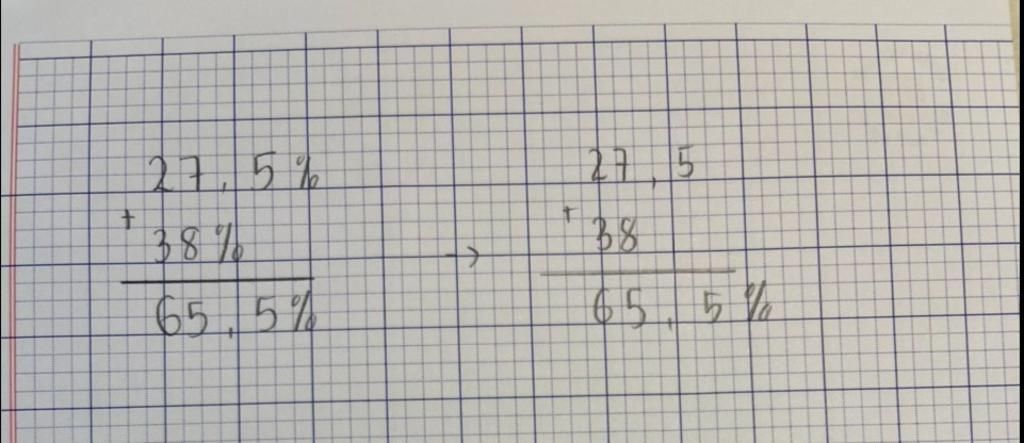 27,5% 27,5
+ 38% → + 38
65,5% 65,5%